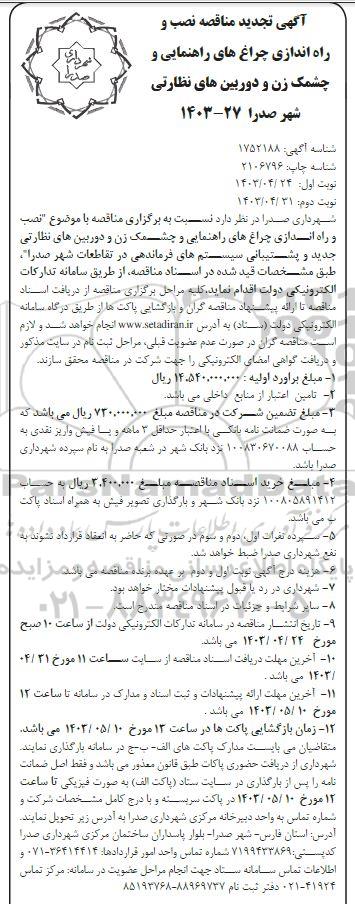 آگهی تجدید مناقصه نصب و
راه اندازی چراغ های راهنمایی و
چشمک زن و دوربین های نظارتی
شهر صدرا ۲۷-۱۴۰۳
شهرداری
صدرا
شناسه آگهی: ۱۷۵۲۱۸۸
شناسه چاپ: ۲۱۰۶۷۹۶
نوبت اول: ۲۴ /۱۴۰۳/۰۴
نوبت دوم: ۳۱ /۱۴۰۳/۰۴
شهرداری صدرا در نظر دارد نسبت به برگزاری مناقصه با موضوع "نصب
و راه اندازی چراغ های راهنمایی و چشمک زن و دوربین های نظارتی
جدید و پشتیبانی سیستم های فرماندهی در تقاطعات شهر صدرا"،
طبق مشخصات قید شده در اسناد مناقصه، از طریق سامانه تدارکات
الکترونیکی دولت اقدام نماید.کلیه مراحل برگزاری مناقصه از دریافت اسناد
مناقصه تا ارائه پیشنهاد مناقصه گران و بازگشایی پاکت ها از طریق درگاه سامانه
الکترونیکی دولت (ستاد) به آدرس www.setadiran.ir انجام خواهد شد و لازم
است مناقصه گران در صورت عدم عضویت قبلی، مراحل ثبت نام در سایت مذکور
و دریافت گواهی امضای الکترونیکی را جهت شرکت در مناقصه محقق سازند.
۱- مبلغ براورد اولیه : ۱۴,۵۴۰,۰۰۰,۰۰۰ ریال
۲- تامین اعتبار از منابع داخلی می باشد.
۳- مبلغ تضمین شرکت در مناقصه مبلغ ۷۳۰,۰۰۰,۰۰۰ ریال می باشد که
به صورت ضمانت نامه بانکی با اعتبار حداقل ۳ ماهه و یا فیش واریز نقدی به
حساب ۱۰۰۸۳۰۶۷۰۰۸۸ نزد بانک شهر در شعبه صدرا به نام سپرده شهرداری
صدرا باشد.
۴- مبلغ خرید اسناد مناقصه مبلغ ۳,۴۰۰,۰۰۰ ریال به حساب
۱۰۰۸۰۵۸۹۱۴۱۲ نزد بانک شهر و بارگذاری تصویر فیش به همراه اسناد پاکت
ب می باشد.
۵- سپرده نفرات اول، دوم و سوم در صورتی که حاضر به انعقاد قرارداد نشوند به
نفع شهرداری صدرا ضبط خواهد شد.
۶- هزینه درج آگهی نوبت اول و دوم بر عهده برنده مناقصه می باشد.
۷- شهرداری در رد یا قبول پیشنهادات مختار خواهد بود.
۸- سایر شرایط و جزئیات در اسناد مناقصه مندرج است.
۹- تاریخ انتشار مناقصه در سامانه تدارکات الکترونیکی دولت از ساعت ۱۰ صبح
مورخ ۲۴ /۰۴ /۱۴۰۳ می باشد.
۱۰- آخرین مهلت دریافت اسناد مناقصه از سایت ساعت ۱۱ مورخ ۳۱ /۰۴
/۱۴۰۳ می باشد .
۱۱- آخرین مهلت ارائه پیشنهادات و ثبت اسناد و مدارک در سامانه تا ساعت ۱۲
مورخ ۱۰ /۰۵ /۱۴۰۳ می باشد .
۱۲- زمان بازگشایی پاکت ها در ساعت ۱۳ مورخ ۱۰ /۰۵ /۱۴۰۳ می باشد.
متقاضیان می بایست مدارک پاکت های الف- ب-ج در سامانه بارگذاری نمایند.
شهرداری از دریافت حضوری پاکات طبق قانون معذور می باشد و فقط اصل ضمانت
نامه را پس از بارگذاری در سایت ستاد (پاکت الف) به صورت فیزیکی تا ساعت
۱۲ مورخ ۱۰ /۱۴۰۳/۰۵ در پاکت سربسته و با درج کامل مشخصات شرکت و
شماره تماس به واحد دبیرخانه مرکزی شهرداری صدرا به آدرس زیر تحویل نمایند.
آدرس: استان فارس- شهر صدرا- بلوار پاسداران ساختمان مرکزی شهرداری صدرا
کدپستی: ۷۱۹۹۴۳۳۸۶۹ شماره تماس واحد امور قراردادها: ۳۶۴۱۴۴۱۴-۰۷۱ و
اطلاعات تماس سامانه ستاد جهت انجام مراحل عضویت در سامانه: مرکز تماس
۴۱۹۳۴-۰۲۱ دفتر ثبت نام ۸۸۹۶۹۷۳۷-۸۵۱۹۳۷۶۸